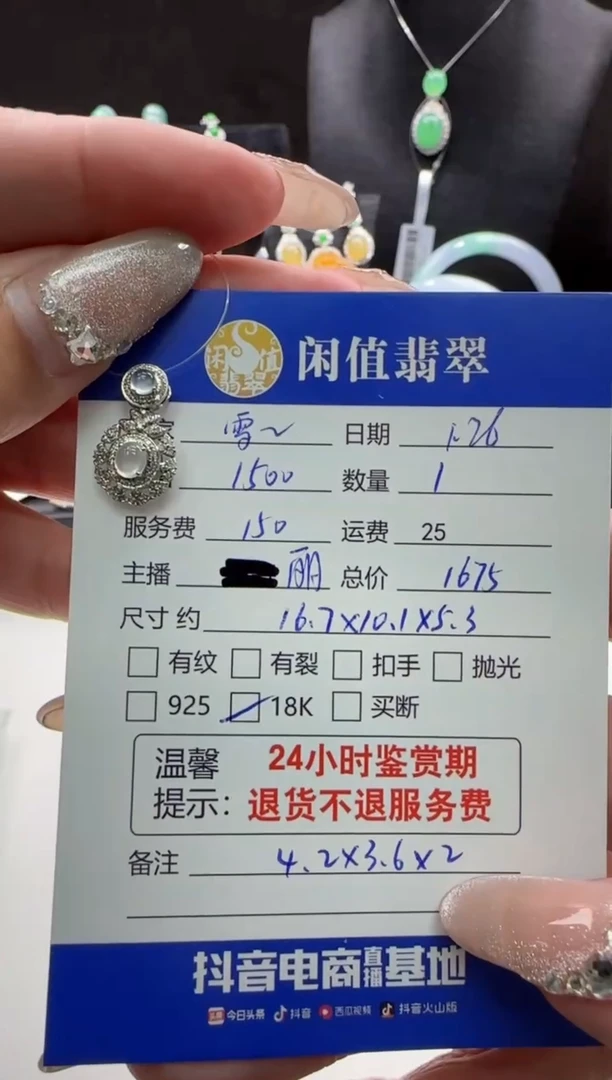 闲值翡翠
闲值翡翠
雪~ 日期 1.26
1500 数量 1
服务费 150 运费 25
主播 丽 总价 1675
尺寸 约 16.7×10.1×5.3
有纹 有裂 扣手 抛光
925 18K 买断
温馨提示：
24小时鉴赏期
退货不退服务费
备注 4.2×3.6×2
抖音电商直播基地
头条 今日头条 抖音 西瓜视频 抖音火山版